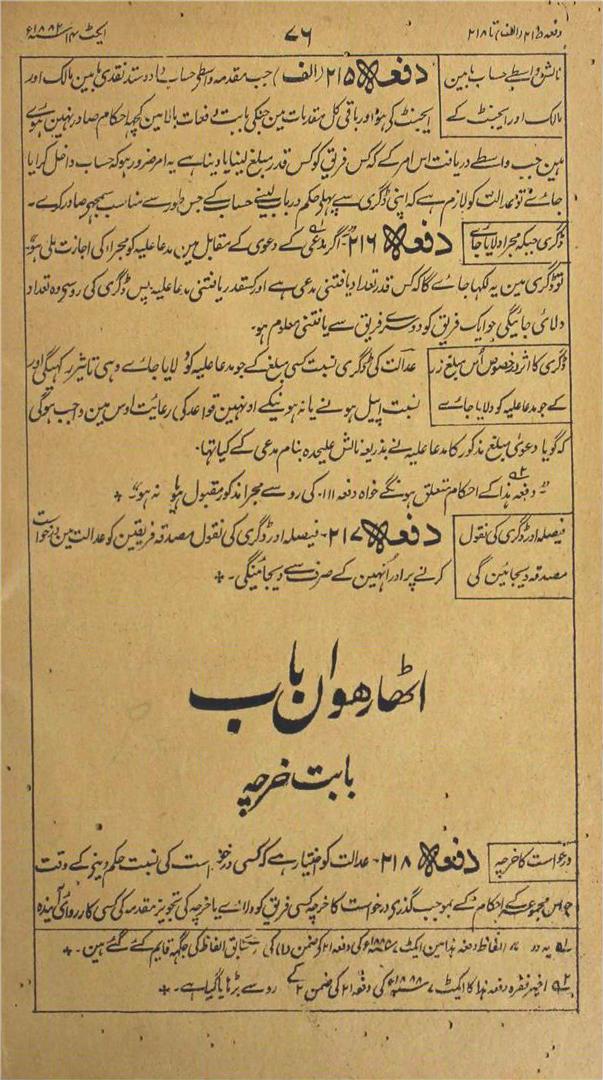 دفعہ ۲۱۵ (الف) تا ۲۱۸
۷۶
ایکٹ ۱۴ سنہ ۱۸۸۲ء
نالش واسطے حساب مابین
مالک اور ایجنٹ کے
دفعہ ۲۱۵ (الف) جب مقدمہ واسطے حساب دادوستد نقدی مابین مالک اور
ایجنٹ کی ہو اور باقی کل مقدمات مین جنکی بابت دفعات بالا مین کچھ احکام صادر نہین ہوے
ہین جب واسطے دریافت اس امر کے کہ کس فریق کو کس قدر مبلغ لینا یا دینا ہے یہ امر ضرور ہو کہ حساب داخل کرایا
جاے تو عدالت کو لازم ہے کہ اپنی ڈگری سے پہلے حکم درباب لینے حساب کے جس طور سے مناسب سمجھے صادر کرے۔
ڈگری جبکہ مجرا دلایا جاے
دفعہ ۲۱۶۔ اگر مدعی کے دعوی کے مقابل مین مدعا علیہ کو مجرا کی اجازت ملی ہو
تو ڈگری مین یہ لکھا جاے گا کہ کس قدر تعداد یافتنی مدعی ہے اور کسقدر یافتنی مدعا علیہ پس ڈگری کی رو سے وہ تعداد
دلائی جائیگی جو ایک فریق کو دوسرے فریق سے یافتنی معلوم ہو۔
ڈگری کا اثر درخصوص اُس مبلغ زر
کے جو مدعا علیہ کو دلایا جاے
عدالت کی ڈگری نسبت کسی مبلغ کے جو مدعا علیہ کو دلایا جاے وہی تاثیر رکھیگی اور
نسبت اپیل ہونے یا نہ ہونیکے اونہین قواعد کی رعایت اوس مین واجب ہوگی
کہ گویا دعوی مبلغ مذکور کا مدعا علیہ نے بذریعہ نالش علیحدہ بنام مدعی کے کیا تہا۔
دفعہ ہذا کے احکام متعلق ہونگے خواہ دفعہ ۱۱۱ کی رو سے مجرا مذکور مقبول ہو یا نہ ہو۔
فیصلہ اور ڈگری کی نقول
مصدقہ دیجائین گی
دفعہ ۲۱۷۔ فیصلہ اور ڈگری کی نقول مصدقہ فریقین کو عدالت مین درخواست
کرنے پر اور اُنہین کے صرف سے دیجائینگی۔
اٹھارھواں باب
بابت خرچہ
درخواست کا خرچہ
دفعہ ۲۱۸۔ عدالت کو اختیار ہے کہ کسی درخواست کی نسبت حکم دینے کے وقت
جو اس مجموعے کے احکام کے بموجب گذری درخواست کا خرچہ کسی فریق کو دلاے یا خرچہ کی تجویز مقدمہ کی کسی کارروائی آیندہ
۱ یہ الفاظ دفعہ ہذا مین ایکٹ ۷ سنہ ۱۸۸۸ء کی دفعہ ۲۱ کی ضمن (۱) کی سابق الفاظ کی جگہہ قایم کئے گئے ہین۔
۲ اخیر فقرہ دفعہ ہذا کا ایکٹ ۷ سنہ ۱۸۸۸ء کی دفعہ ۲۱ کی ضمن ۲ کے رو سے بڑہایا گیا ہے۔